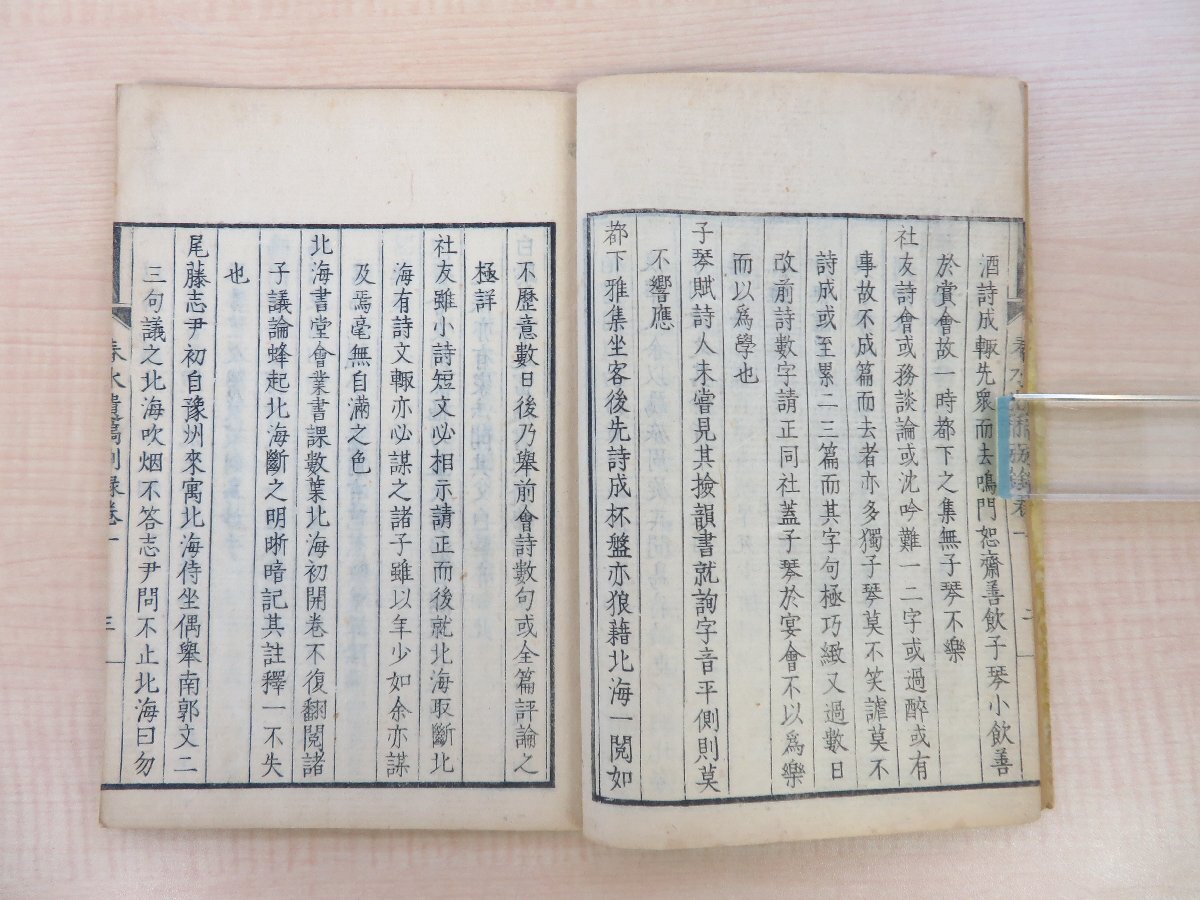 酒詩成輙先衆而去鳴門恕齋善飲子琴小飲善
於賞會故一時都下之集無子琴不樂
社友詩會或務談論或沈吟難一二字或過醉或有
事故不成篇而去者亦多獨子琴莫不笑謔莫不
詩成或至累二三篇而其字句極巧緻又過數日
改前詩數字請正同社蓋子琴於宴會不以爲樂
而以爲學也
子琴賦詩人未嘗見其撿韻書就詢字音平側則莫
不響應
都下雅集坐客後先詩成杯盤亦狼藉北海一閲如
不歷意數日後乃舉前會詩數句或全篇評論之
極詳
社友雖小詩短文必相示請正而後就北海取斷北
海有詩文輙亦必謀之諸子雖以年少如余亦謀
及焉毫無自滿之色
北海書堂會業書課數葉北海初開卷不復翻閲諸
子議論蜂起北海斷之明晰暗記其註釋一不失
也
尾藤志尹初自豫州來寓北海侍坐偶舉南郭文二
三句議之北海吹烟不答志尹問不止北海曰勿
春水遺稿別録卷一
三